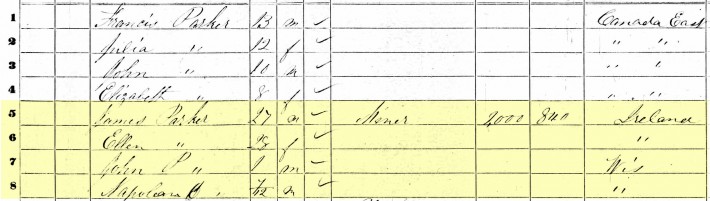 1 Francis Parker 13 m ✓ Canada East
2 Julia " 12 f ✓ " "
3 John " 10 m ✓ " "
4 Elizabeth " 8 f ✓ " "
5 James Parker 27 m ✓ Miner 2,000 840 Ireland
6 Ellen " 28 f ✓ "
7 John P " 1 m ✓ Wis
8 Napolean B " /12 m ✓ "